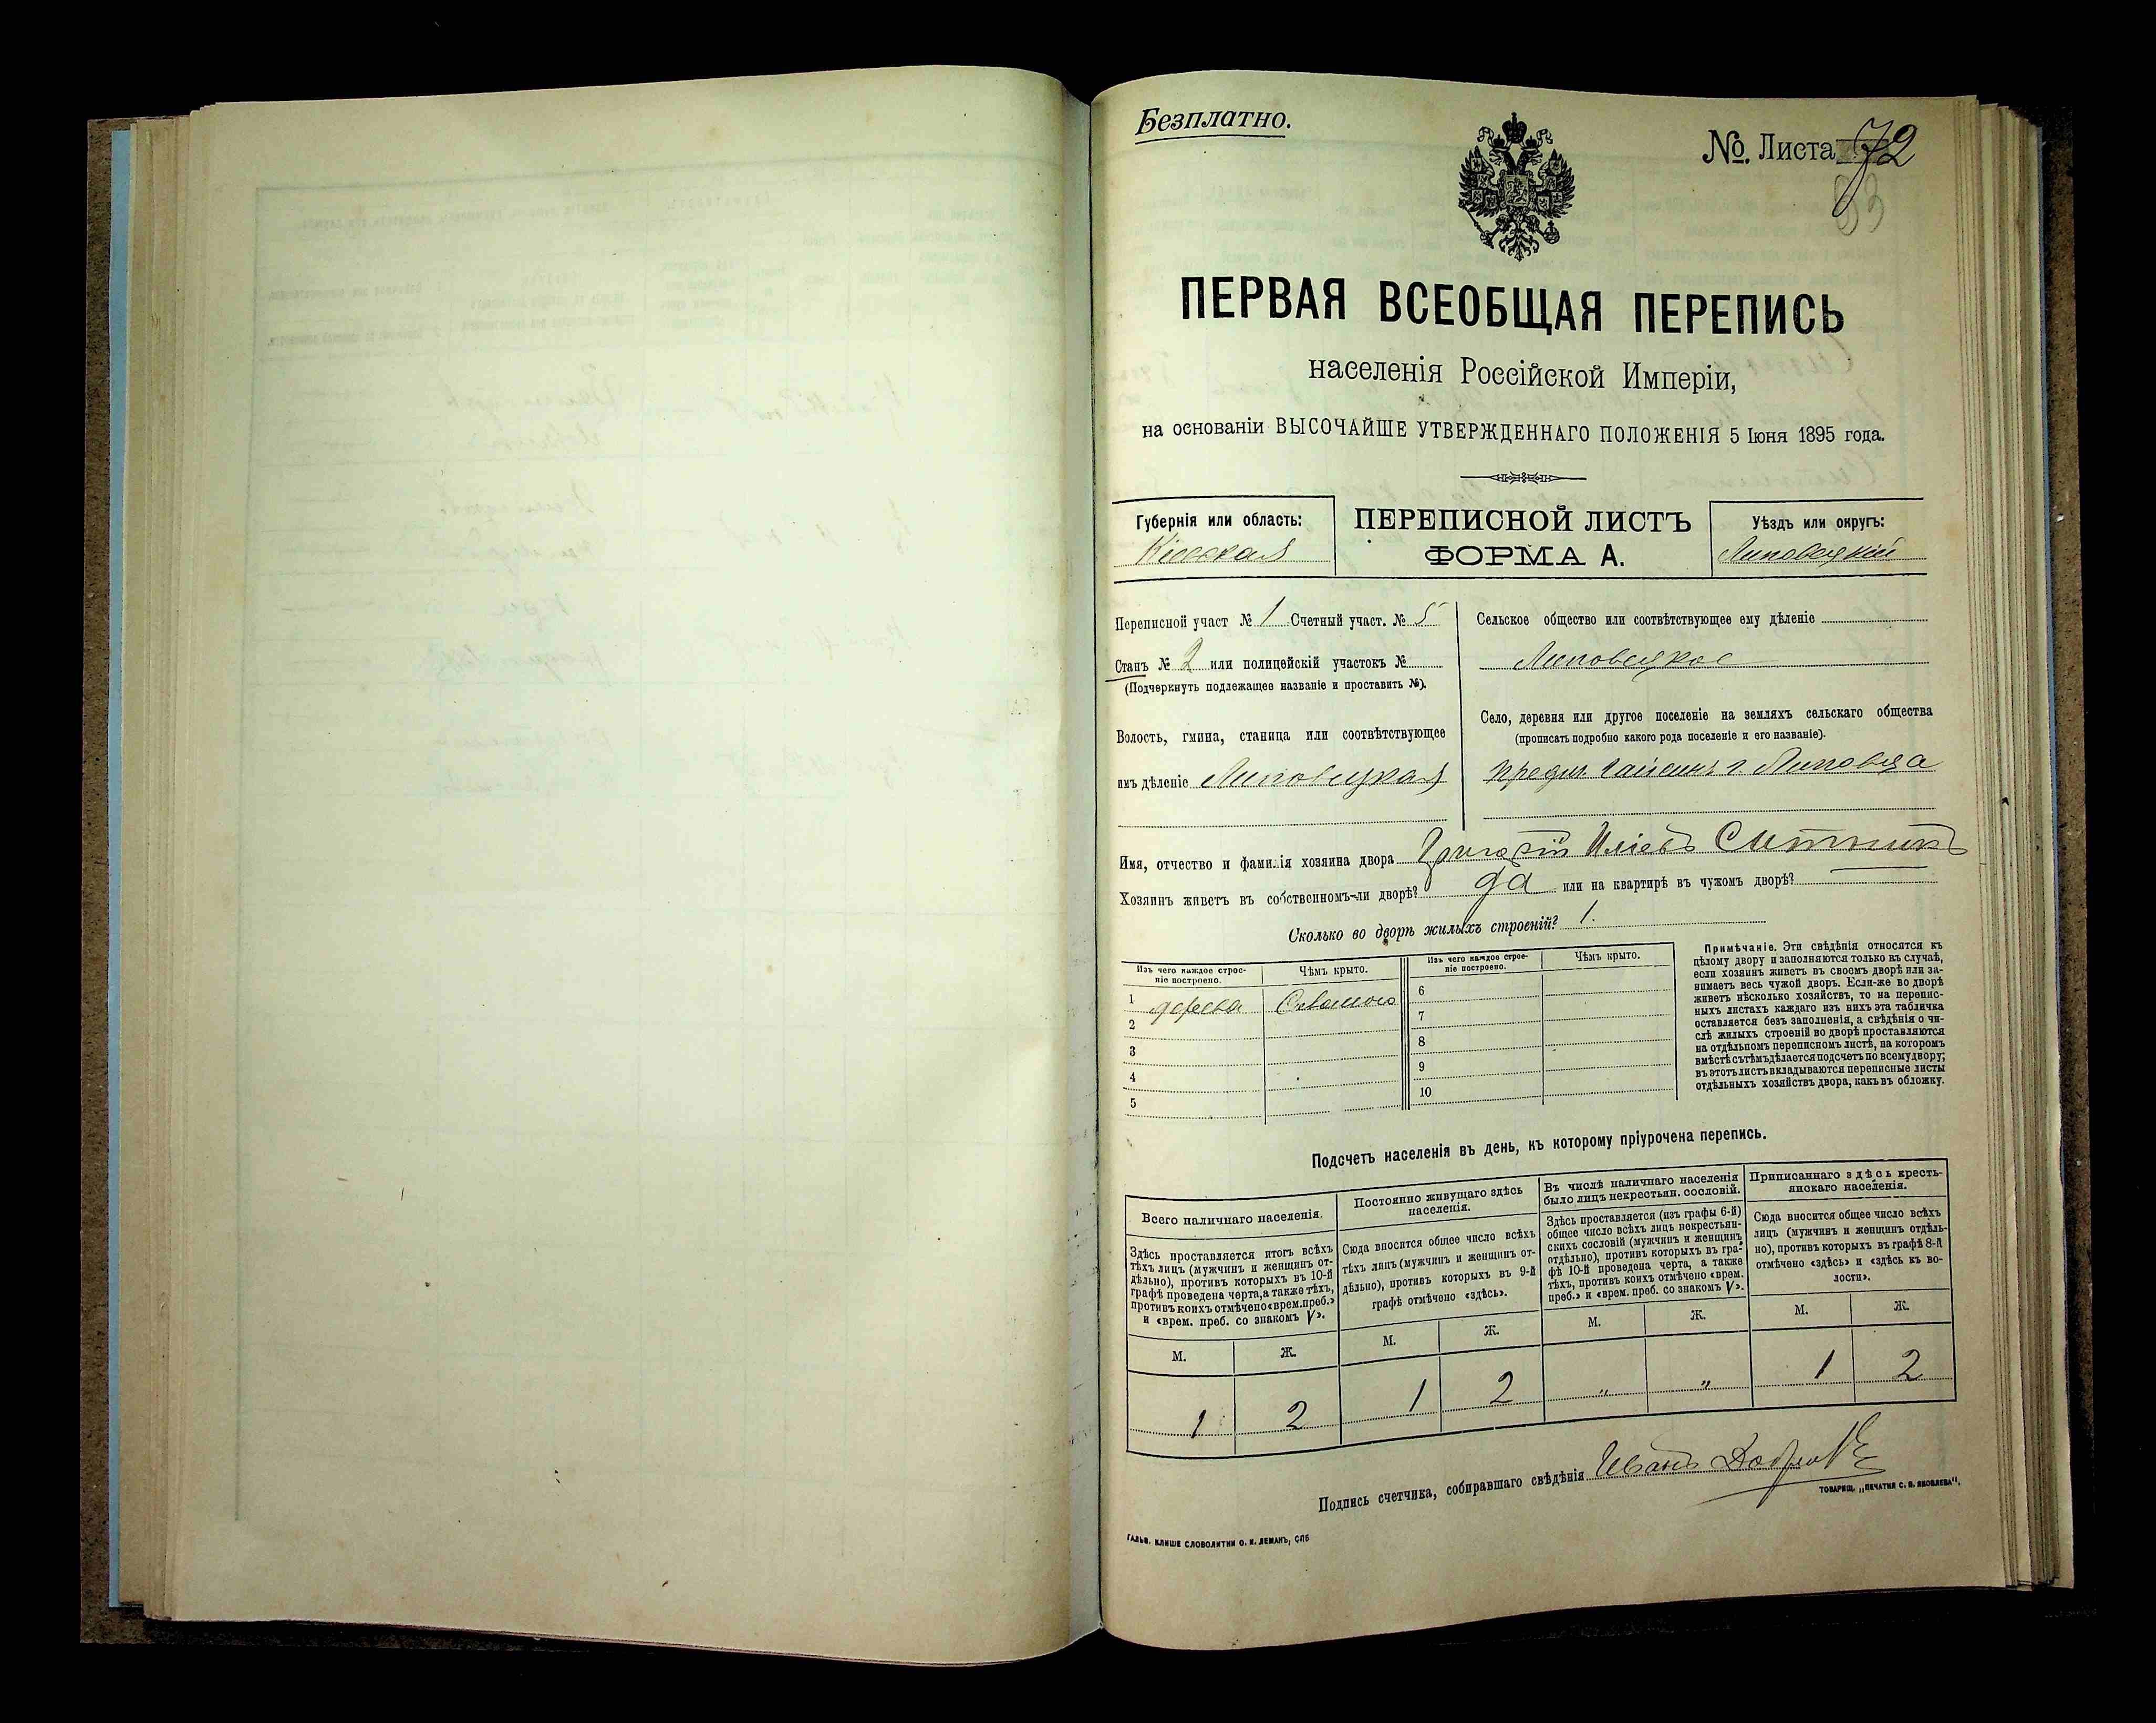 Безплатно.
№. Листа 72
93
ПЕРВАЯ ВСЕОБЩАЯ ПЕРЕПИСЬ
населенія Россійской Имперіи,
на основаніи ВЫСОЧАЙШЕ УТВЕРЖДЕННАГО ПОЛОЖЕНІЯ 5 Іюня 1895 года.
Губернія или область:
Кіевская
ПЕРЕПИСНОЙ ЛИСТЪ
ФОРМА А.
Уѣздъ или округъ:
Липовецкій
Переписной участ № 1 Счетный участ. № 5
Станъ № 2 или полицейскій участокъ №
(Подчеркнуть подлежащее названіе и проставить №).
Волость, гмина, станица или соотвѣтствующее
имъ дѣленіе Липовецкая
Сельское общество или соотвѣтствующее ему дѣленіе
Липовецкое
Село, деревня или другое поселеніе на земляхъ сельскаго общества
(прописать подробно какого рода поселеніе и его названіе).
г. Липовца
Имя, отчество и фамилія хозяина двора Григорій Иліевъ Ситникъ
Хозяинъ живетъ въ собственномъ-ли дворѣ? да или на квартирѣ въ чужомъ дворѣ?
Сколько во дворѣ жилыхъ строеній? 1.
Изъ чего каждое строеніе построено.
Чѣмъ крыто.
Изъ чего каждое строеніе построено.
Чѣмъ крыто.
1 дерева Соломою
2
3
4
5
6
7
8
9
10
Примѣчаніе. Эти свѣдѣнія относятся къ
цѣлому двору и заполняются только въ случаѣ,
если хозяинъ живетъ въ своемъ дворѣ или за-
нимаетъ весь чужой дворъ. Если-же во дворѣ
живетъ нѣсколько хозяйствъ, то на перепис-
ныхъ листахъ каждаго изъ нихъ эта табличка
оставляется безъ заполненія, а свѣдѣнія о чи-
слѣ жилыхъ строеній во дворѣ проставляются
на отдѣльномъ переписномъ листѣ, на которомъ
вмѣстѣ съ тѣмъ дѣлается подсчетъ по всему двору;
въ этотъ листъ вкладываются переписные листы
отдѣльныхъ хозяйствъ двора, какъ въ обложку.
Подсчетъ населенія въ день, къ которому пріурочена перепись.
Всего наличнаго населенія.
Здѣсь проставляется итогъ всѣхъ
тѣхъ лицъ (мужчинъ и женщинъ от-
дѣльно), противъ которыхъ въ 10-й
графѣ проведена черта, а также тѣхъ,
противъ коихъ отмѣчено «врем. преб.»
и «врем. преб. со знакомъ V».
М. Ж.
1 2
Постоянно живущаго здѣсь
населенія.
Сюда вносится общее число всѣхъ
тѣхъ лицъ (мужчинъ и женщинъ от-
дѣльно), противъ которыхъ въ 9-й
графѣ отмѣчено «здѣсь».
М. Ж.
1 2
Въ числѣ наличнаго населенія
было лицъ некрестьян. сословій.
Здѣсь проставляется (изъ графы 6-й)
общее число всѣхъ лицъ некрестьян-
скихъ сословій (мужчинъ и женщинъ
отдѣльно), противъ которыхъ въ гра-
фѣ 10-й проведена черта, а также
тѣхъ, противъ коихъ отмѣчено «врем.
преб.» и «врем. преб. со знакомъ V».
М. Ж.
" "
Приписаннаго здѣсь кресть-
янскаго населенія.
Сюда вносится общее число всѣхъ
лицъ (мужчинъ и женщинъ отдѣль-
но), противъ которыхъ въ графѣ 8-й
отмѣчено «здѣсь» и «здѣсь къ во-
лости».
М. Ж.
1 2
Подпись счетчика, собиравшаго свѣдѣнія Иванъ
ТОВАРИЩ. „ПЕЧАТНЯ С. П. ЯКОВЛЕВА".
ГАЛЬВ. КЛИШЕ СЛОВОЛИТНИ О. И. ЛЕМАНЪ, СПБ